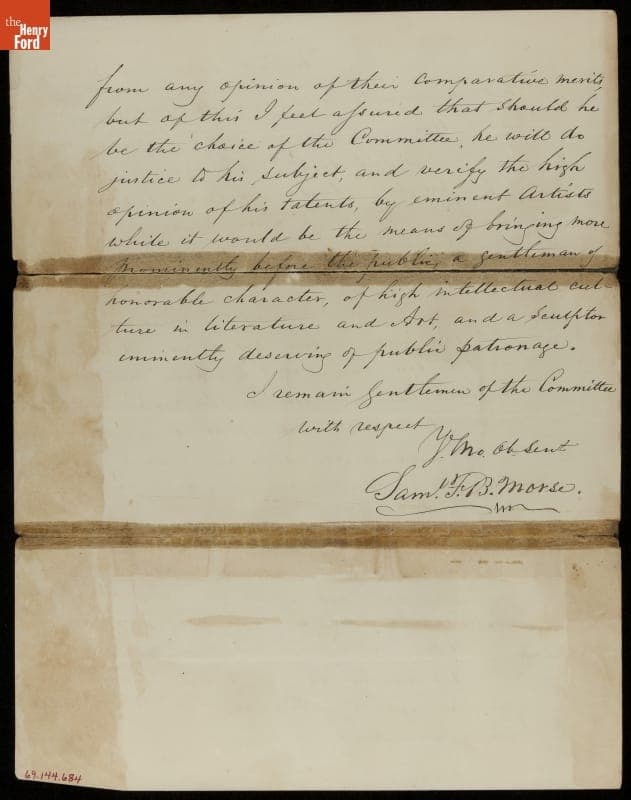 the
Henry
Ford
from any opinion of their comparative merits,
but of this I feel assured that should he
be the choice of the Committee, he will do
justice to his subject, and verify the high
opinion of his talents, by eminent Artists
while it would be the means of bringing more
prominently before the public, a gentleman of
honorable character, of high intellectual cul-
ture in literature and Art, and a Sculptor
eminently deserving of public patronage.
I remain Gentlemen of the Committee
with respect
Yr. Mo. Ob Sent
Saml. F. B. Morse.
69.144.684